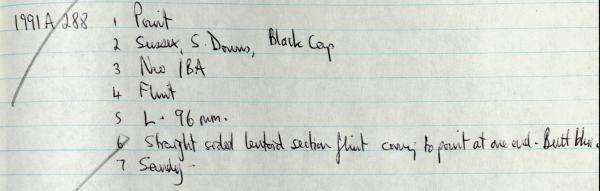 1991 A 288 1 Point
2 Sussex, S. Downs, Black Cap
3 Neo / BA
4 Flint
5 L. 96 mm.
6 Straight sided lentoid section flint coming to point at one end - Butt
7 Sandy.